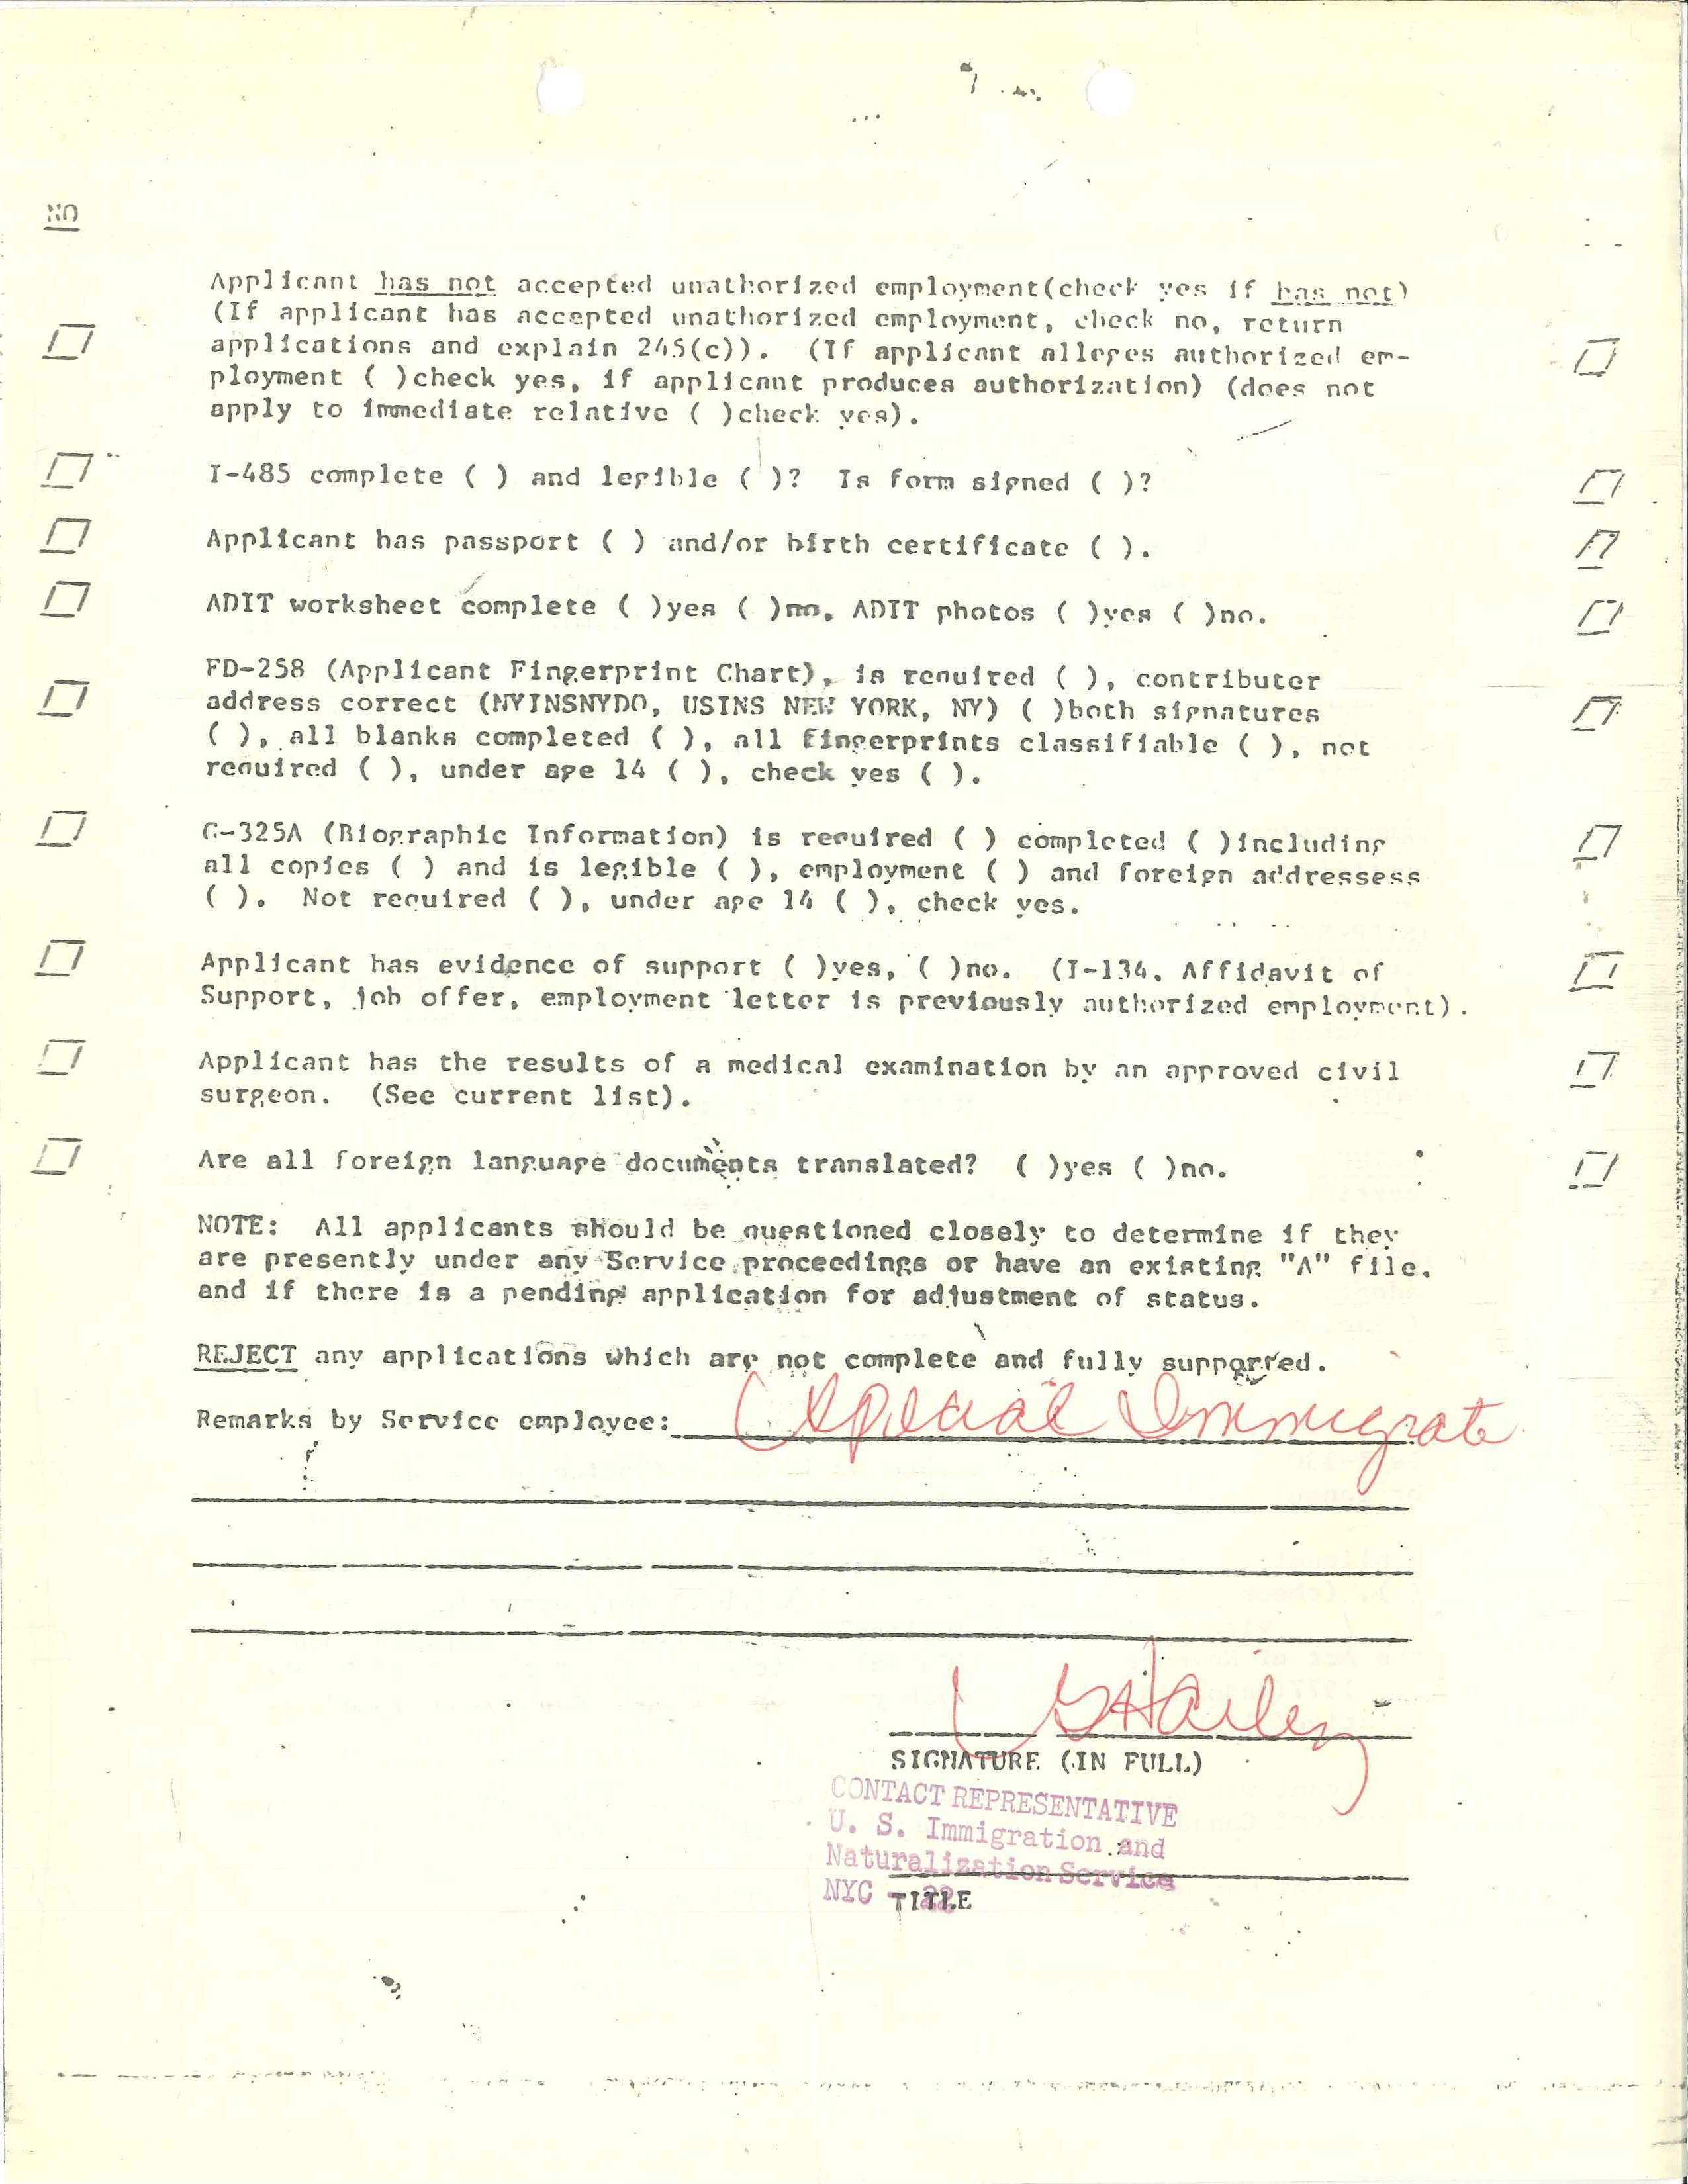 NO
Applicant has not accepted unathorized employment(check yes if has not)
(If applicant has accepted unathorized employment, check no, return
applications and explain 245(c)). (If applicant alleges authorized em-
ployment ( )check yes, if applicant produces authorization) (does not
apply to immediate relative ( )check yes).
I-485 complete ( ) and legible ( )? Is form signed ( )?
Applicant has passport ( ) and/or birth certificate ( ).
ADIT worksheet complete ( )yes ( )no, ADIT photos ( )yes ( )no.
FD-258 (Applicant Fingerprint Chart), is required ( ), contributer
address correct (NYINSNYDO, USINS NEW YORK, NY) ( )both signatures
( ), all blanks completed ( ), all fingerprints classifiable ( ), not
required ( ), under age 14 ( ), check yes ( ).
G-325A (Biographic Information) is required ( ) completed ( )including
all copies ( ) and is legible ( ), employment ( ) and foreign addressess
( ). Not required ( ), under age 14 ( ), check yes.
Applicant has evidence of support ( )yes, ( )no. (I-134, Affidavit of
Support, job offer, employment letter is previously authorized employment).
Applicant has the results of a medical examination by an approved civil
surgeon. (See current list).
Are all foreign language documents translated? ( )yes ( )no.
NOTE: All applicants should be questioned closely to determine if they
are presently under any Service proceedings or have an existing "A" file,
and if there is a pending application for adjustment of status.
REJECT any applications which are not complete and fully supported.
Remarks by Service employee: Special Immigrate
SIGNATURE (IN FULL)
CONTACT REPRESENTATIVE
U. S. Immigration and
Naturalization Service
NYC - 22
TITLE